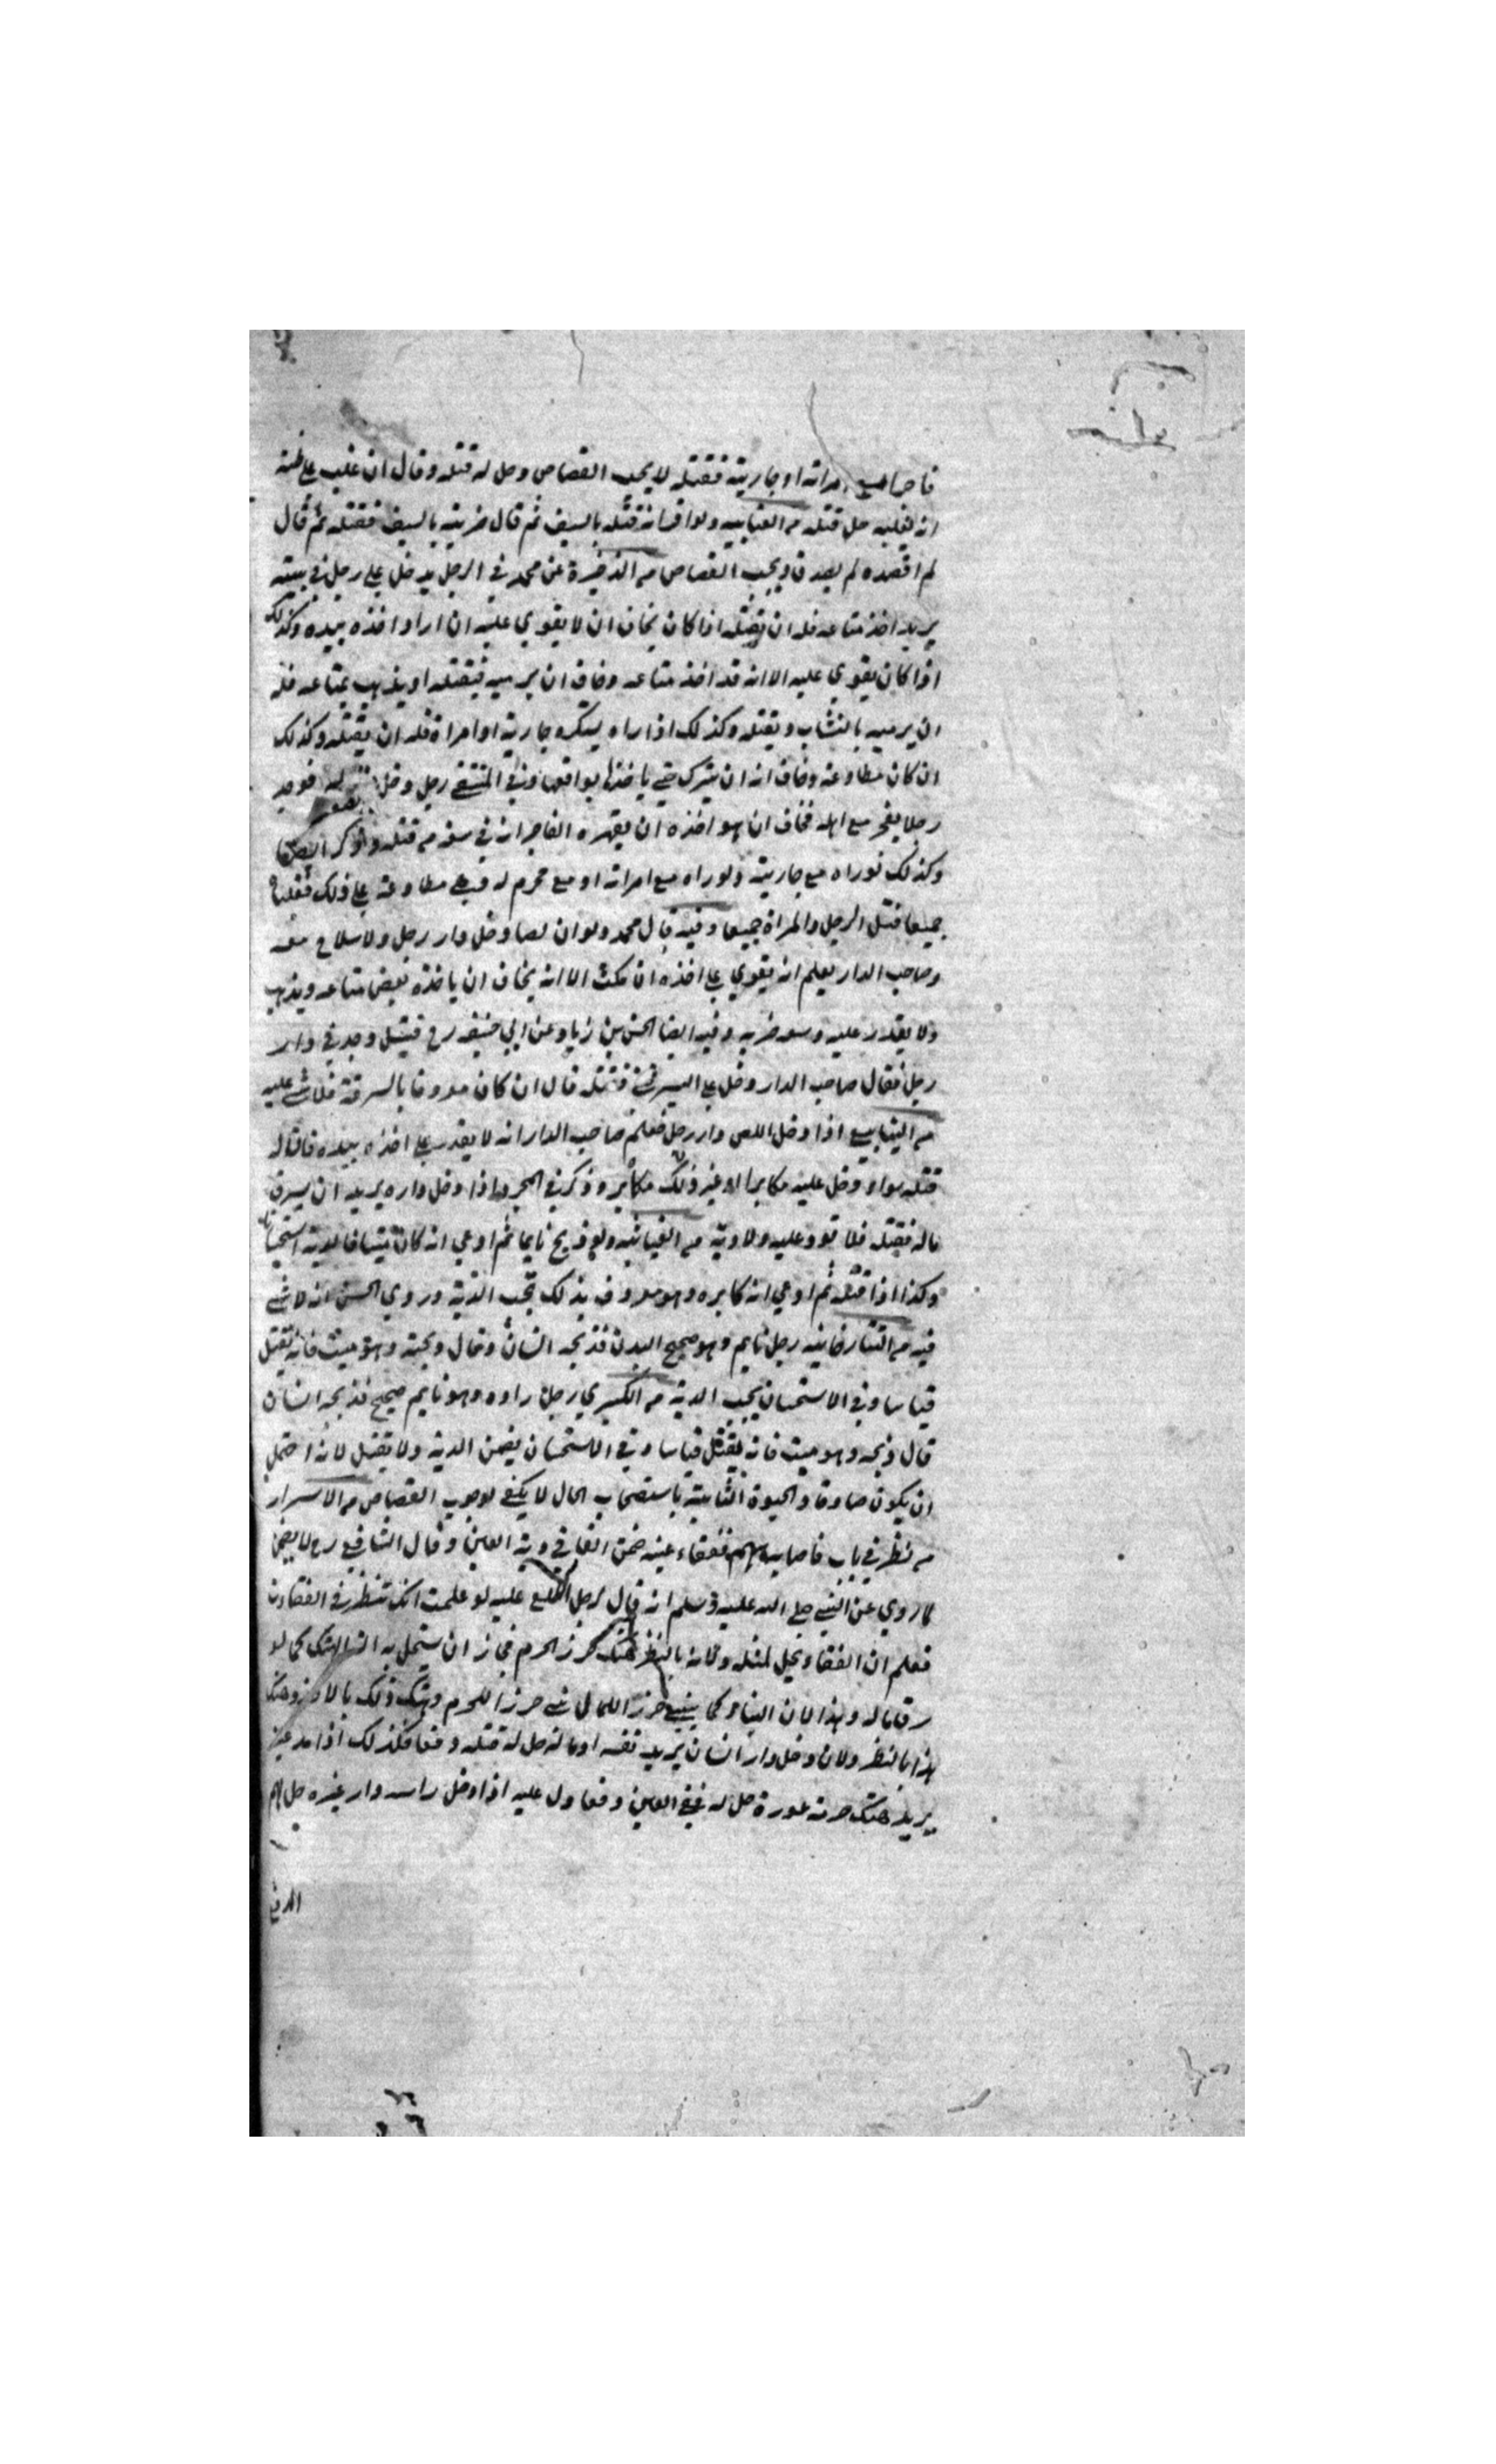 فاجرا مع امراته او جاريته فقتله لا يجب القصاص وحل له قتله وقال ان غلب على ظنه
انه يغلبه حل قتله من العتابيه ولو اقر انه قتله بالسيف ثم قال ضربته بالسيف فقتله ثم قال
لم اقصده لم يصدق ويجب القصاص من الذخيرة عن محمد في الرجل يدخل على رجل في بيته
يريد اخذ متاعه فله ان يقتله اذا كان يخاف ان لا يقوي عليه ان اراد اخذه بيده وكذلك
اذا كان يقوي عليه الا انه قد اخذ متاعه وخاف ان يرميه فيقتله او يذهب بمتاعه فله
ان يرميه بالنشاب ويقتله وكذلك اذا راه يستكره جارية او امراة فله ان يقتله وكذلك
ان كان مطاوعة وخاف انه ان يترك حتى ياخذ يواقعها وفي المنتقى رجل دخل فوجد
رجلا يفجر مع اهله فخاف ان هو اخذه ان يقهره الفاجر انه في سعة من قتله
وكذلك لو راه مع جاريته ولو راه مع امراته او مع محرم له وهي مطاوعة على ذلك فغلبها
جميعا قتل الرجل والمراة جميعا وفيه قال محمد ولو ان لصا دخل دار رجل ولا سلاح معه
وصاحب الدار يعلم انه يقوي على اخذه ان مكث الا انه يخاف ان ياخذه بعض متاعه ويذهب
ولا يقدر عليه وسعه ضربه وفيه ايضا الحسن بن زياد عن ابي حنيفه رح قتيل وجد في دار
رجل فقال صاحب الدار دخل علي ليسرقني فقتلته قال ان كان معروفا بالسرقة فلا شي عليه
من الينابيع اذا دخل اللص دار رجل فعلم صاحب الدار انه لا يقدر على اخذه بيده فاقتاله
قتله سواء دخل عليه مكابرا او غير ذلك مكابر وذكر في المجرد اذا دخل داره يريد ان يسرق
ماله فقتله فلا قود عليه ولا دية من الغياثيه ولو ذبح نايما ثم ادعي انه كان ميتا فالدية استحسانا
وكذا اذا قتله ثم ادعي انه كابره وهو معروف بذلك تجب الدية وروي الحسن انه لا شي
فيه من التتارخانيه رجل نايم وهو صحيح البدن فذبحه انسان وقال ذبحته وهو ميت فانه يقتل
قياسا وفي الاستحسان يجب الدية من الكبري رجل راوه وهو نايم صحيح فذبحه انسان
قال ذبحه وهو ميت فانه يقتل قياسا وفي الاستحسان يضمن الدية ولا يقتل لانه احتمل
ان يكون صادقا والحيوة الثابتة باستصحاب الحال لا يكفي لوجوب القصاص من الاسرار
من نظر في باب فاصابه سهم ففقاء عينه ضمن الفاقي دية العين وقال الشافعي رح لا يضمن
لما روي عن النبي صلى الله عليه وسلم انه قال لرجل اطلع عليه لو علمت انك تنظر في الفقاءت
فعلم ان الفقاء يحل لمثله ولانه بالنظر هتك حرز الحرم فجاز ان يستحل به الهتك كما لو
سرق ماله وهذا لان البناء كما يبني حرز المال بني حرز الحرم وهتك ذلك بالاخذ وهتك
هذا بالنظر ولان دخل دار انسان يريد نفسه او ماله حل له قتله دفعا فكذلك اذا مد عينه
يريد هتك حرمة عورة حل له فقي العين دفعا ول عليه اذا دخل راسه دار غيره حل لهم
الدفع